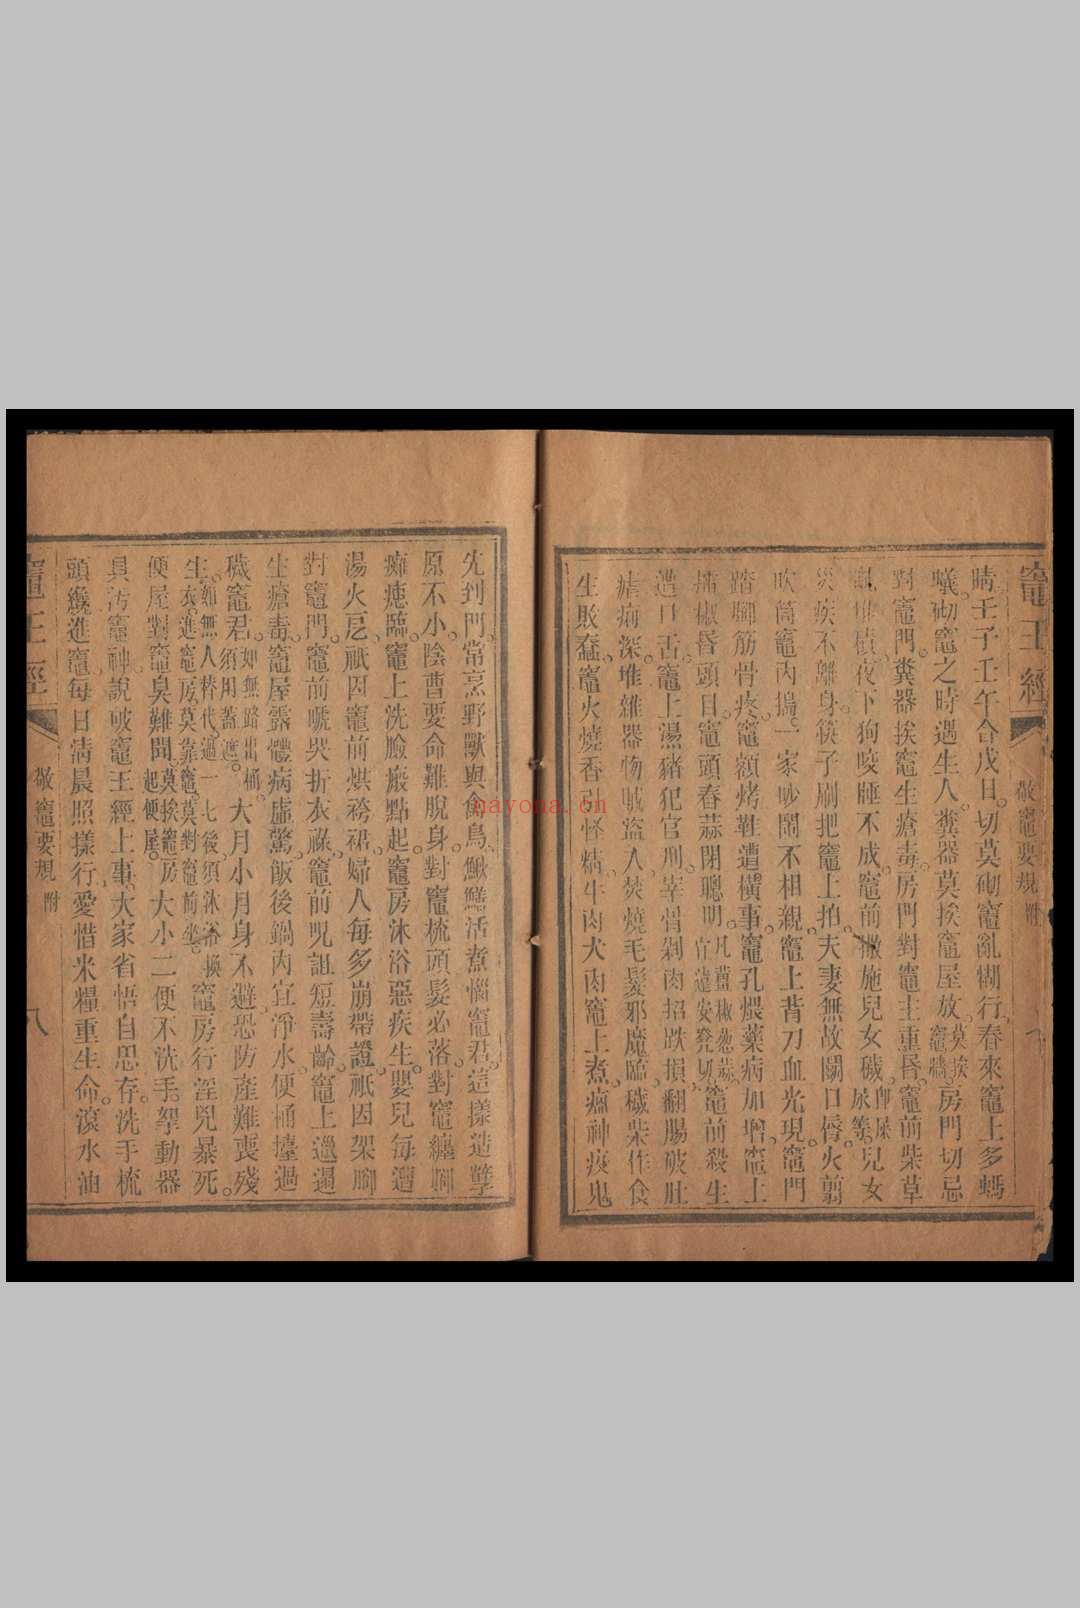 竈王經
敬竈要規 附
晴壬子壬午合戊日切莫砌竈亂糊行春來竈上多螞
蟻砌竈之時遇生人糞器莫挨竈屋放莫挨竈牆房門切忌
對竈門糞器挨竈生瘡毒房門對竈主重昏竈前柴草
亂堆積夜下狗咬睡不成竈前撒施兒女穢即屎尿等兒女
災疾不離身筷子刷把竈上拍夫妻無故鬭口唇火剪
吹筒竈內搗一家吵鬧不相親竈上背刀血光現竈門
踏腳筋骨疼竈額烤鞋遭橫事竈孔煨藥病加增竈上
擂椒昏頭目竈頭舂蒜閉聰明凡薑椒葱蒜宜遠安凳切竈前殺生
遭口舌竈上湯豬犯官刑宰骨剁肉招跌損翻腸破肚
瘧痢深堆雜器物賊盜入焚燒毛髮邪魔臨穢柴作食
生敗蠢竈火燒香引怪精牛肉犬肉竈上煮瘟神疫鬼
先到門常烹野獸與禽鳥鰍鱔活煮惱竈君這樣造孽
原不小陰曹要命難脫身對竈梳頭髮必落對竈纏腳
癱瘧臨竈上洗臉瘢點起竈房沐浴惡疾生嬰兒每遭
湯火厄祇因竈前烘袴裙婦人每多崩帶證祇因架腳
對竈門竈前嚎哭折衣祿竈前咒詛短壽齡竈上邋遢
生瘡毒竈屋露體病虛驚飯後鍋內宜淨水便桶擡過
穢竈君如無路出桶須用蓋遮大月小月身不避恐防產難喪殘
生如無人替代過一七後須沐浴換衣進竈房莫靠竈莫對竈前坐竈房行淫兒暴死
便屋對竈臭難聞莫挨竈房起便屋大小二便不洗手拏動器
具污竈神說破竈王經上事大家省悟自思存洗手梳
頭纔進竈每日清晨照樣行愛惜米糧重生命滾水油
竈王經
敬竈要規 附
八
nayona.cn